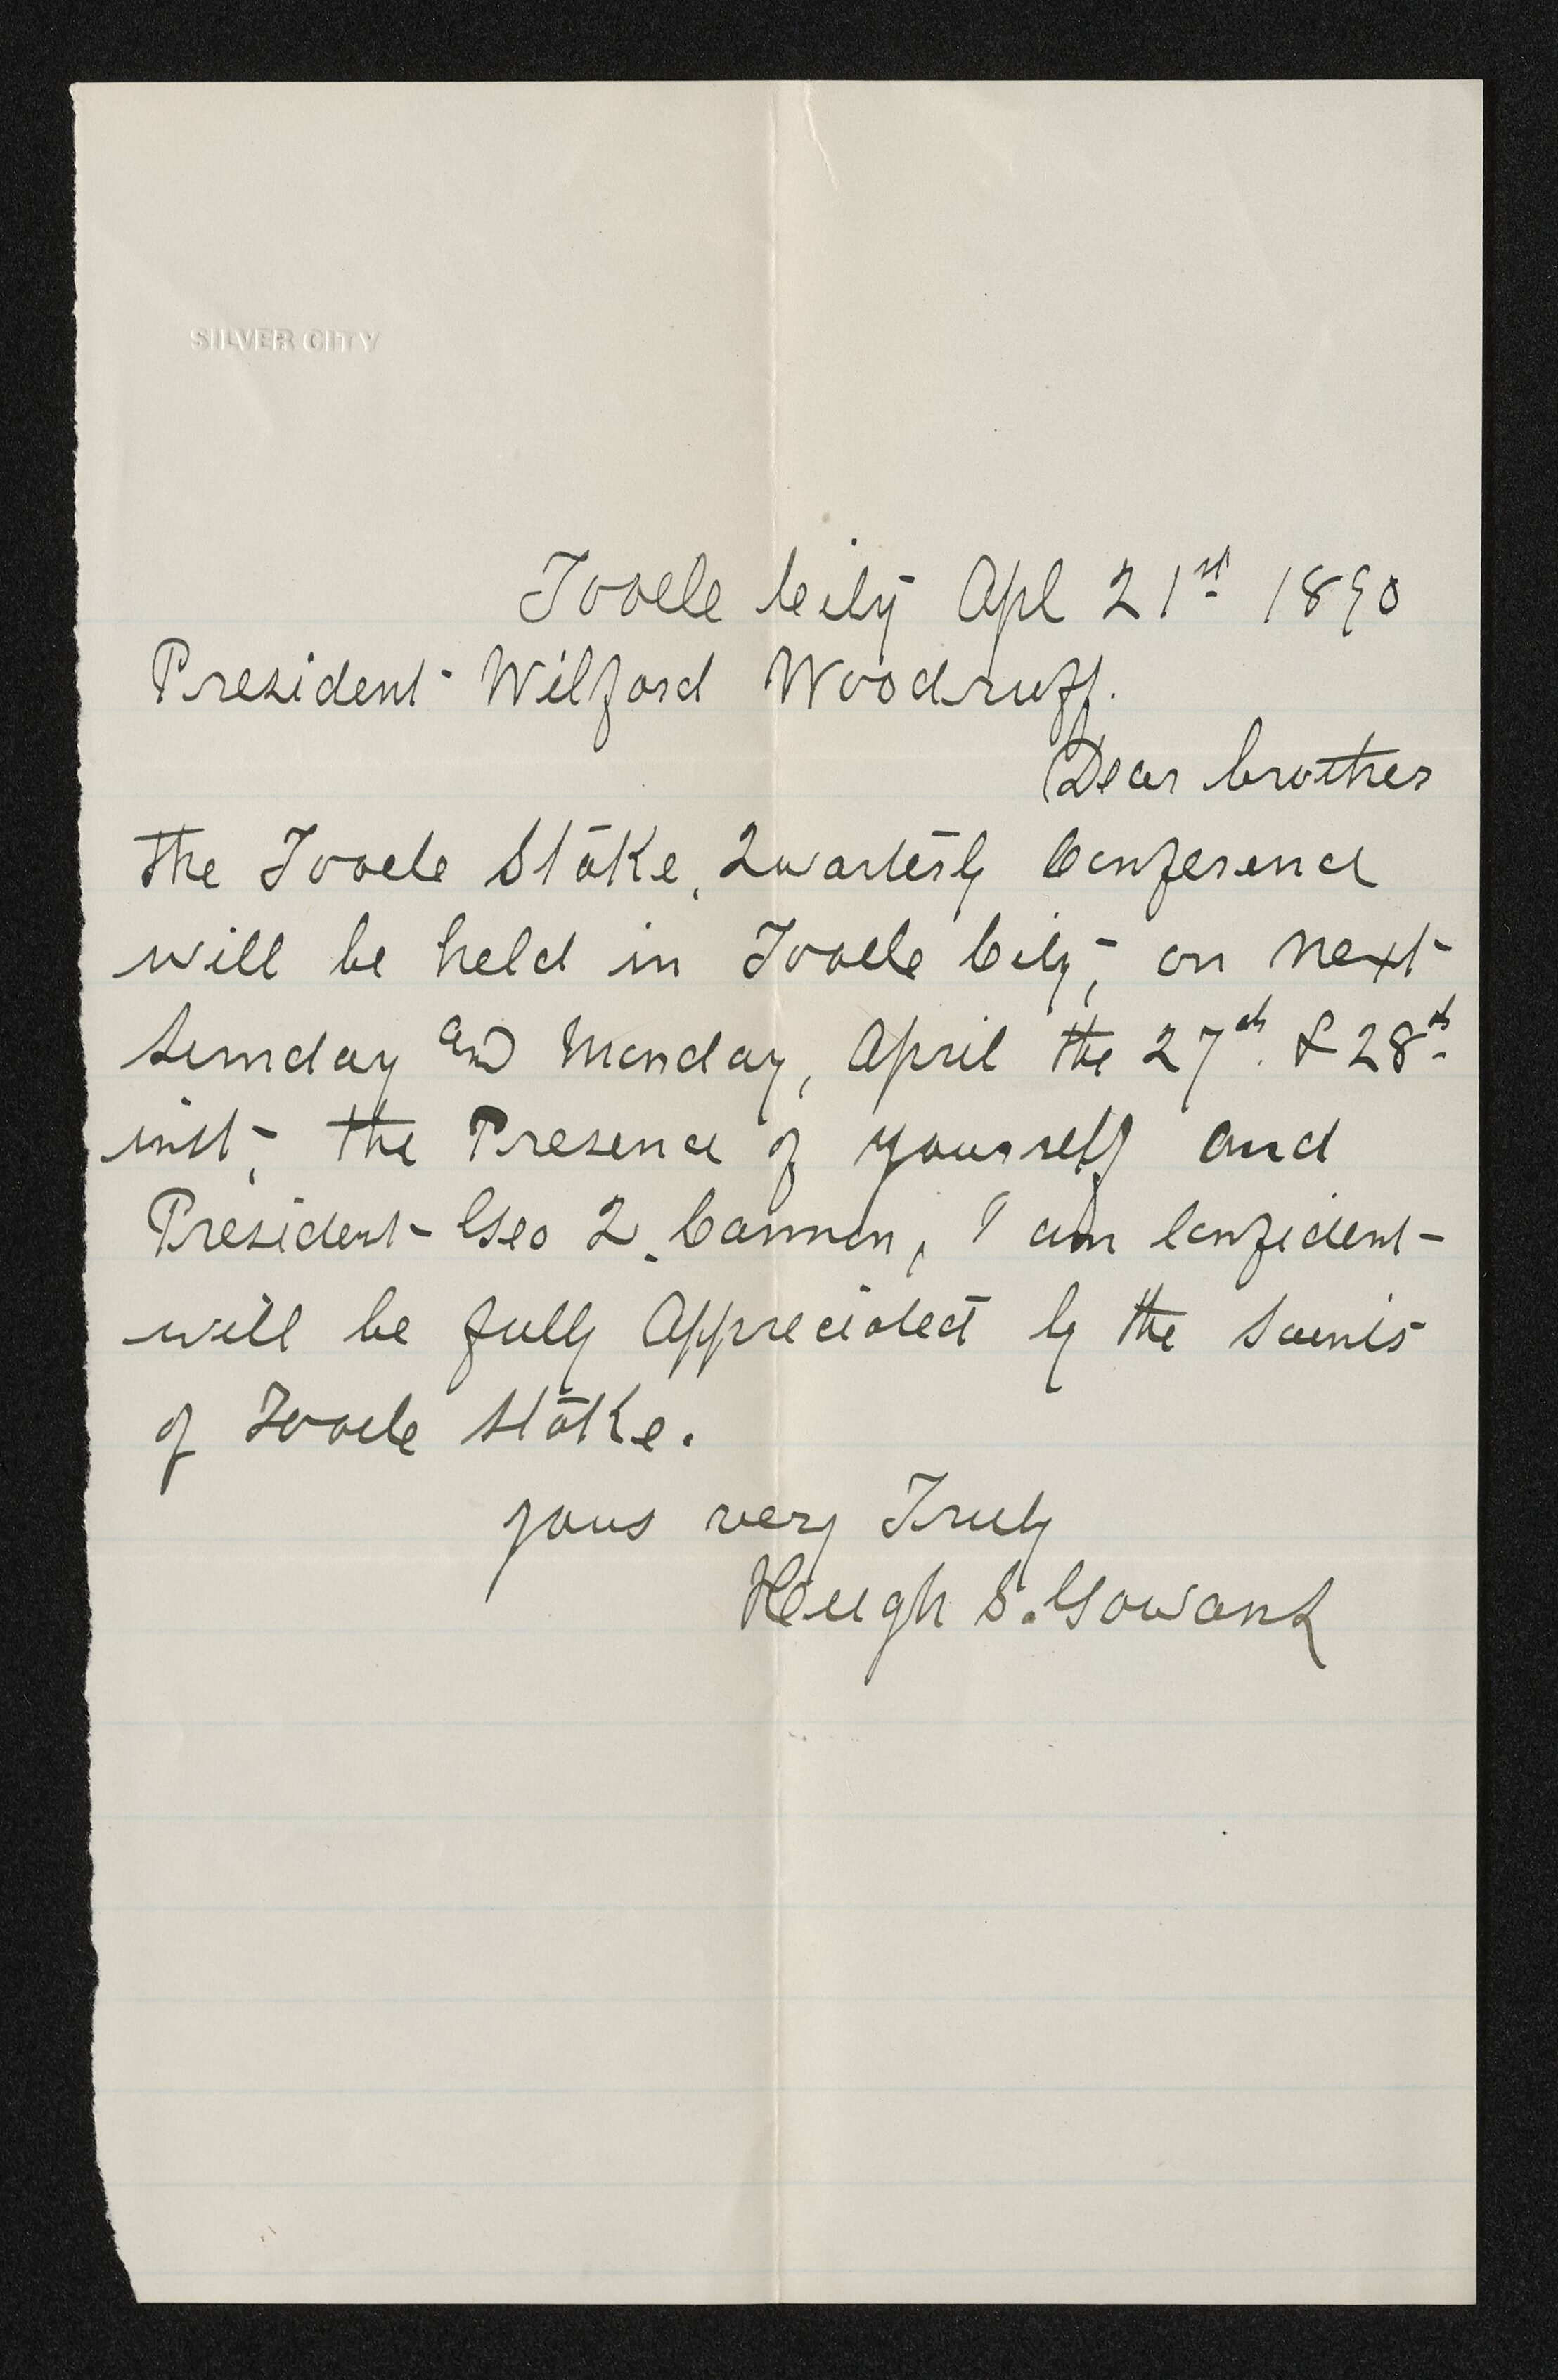 SILVER CITY
Tooele City Apl 21st 1890
President Wilford Woodruff.
Dear brother
the Tooele Stake, Quarterly Conference
will be held in Tooele City, on next
Sunday and Monday, April the 27th & 28th
inst, the Presence of yourself and
President Geo Q. Cannon, I am Confident
will be fully Appreciated by the Saints
of Tooele Stake.
yous very Truly
Hugh S. Gowans